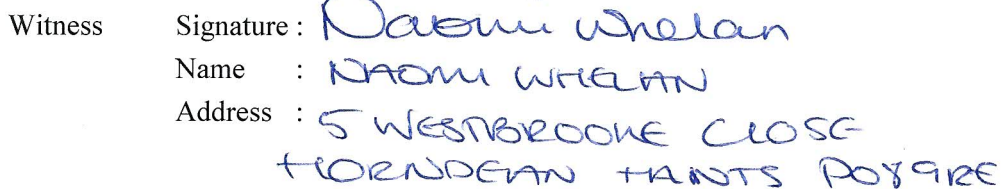 Witness Signature : Naomi Whelan
Name : NAOMI WHELAN
Address : 5 WESTBROOKE CLOSE
HORNDEAN HANTS PO8 9RE